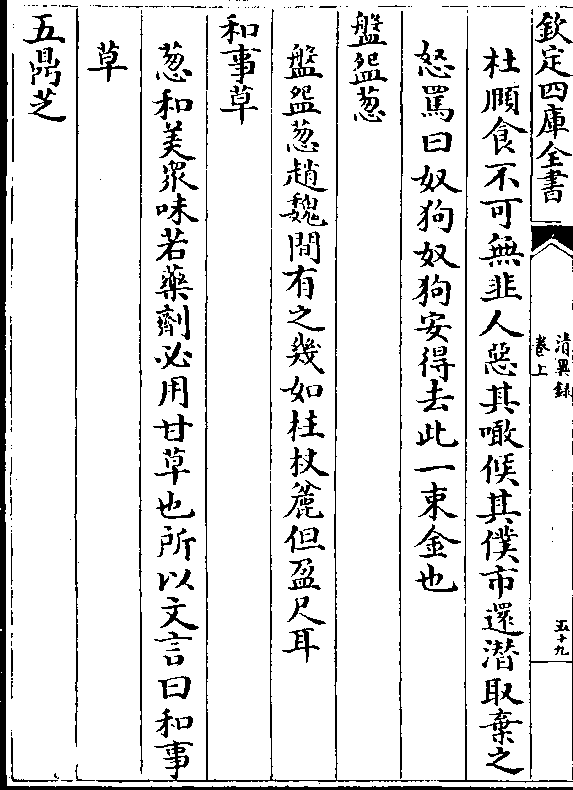 欽定四庫全書
清異録
卷上
五十九
杜頤食不可無韭人惡其噉候其僕市還潜取棄之
怒罵曰奴狗奴狗安得去此一束金也
盤盌葱
盤盌葱趙魏間有之幾如柱杖麄但盈尺耳
和事草
葱和美衆味若藥劑必用甘草也所以文言曰和事
草
五鼎芝